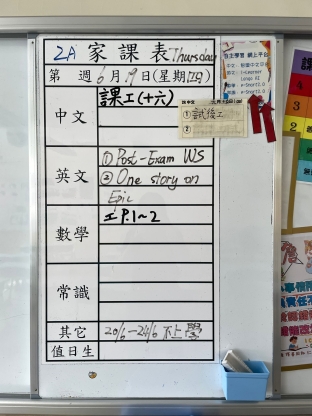 2A 家課表 Thursday
第 週 6月19日(星期四)
中文
課工(十六)
①試後工
②
英文
① Post-Exam WS
② One story on
Epic
數學
工 P.1~2
常識
其它
20/6-24/6 不上學
值日生
自主學習 網上平台